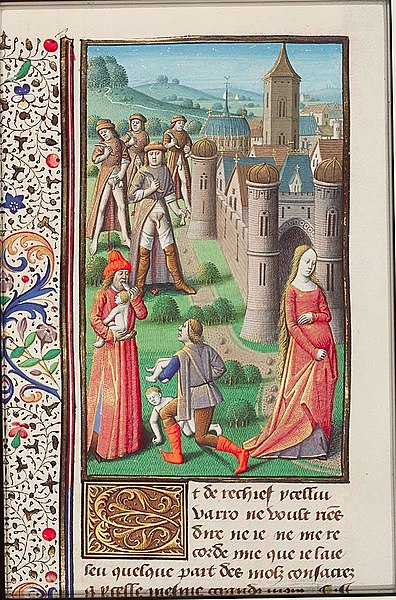 Et de rechief ycellui
varro ne voult riēs
dire ne ie ne me re
corde mie que ie laie
leu quelque part des motz consacrez
a ycelle